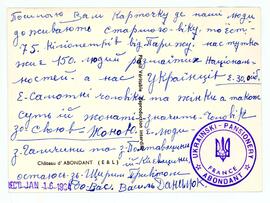 Посилаю Вам Карточку де наші люди
доживають старшого віку, то єст.
75. Кілометрів від Парижу, нас тутка
живе 150. людий
Національ-
ностей а нас Українців Е. 30. осіб.
Е-Самотні чоловіки та жінки а також
суть й жонаті значить Чоловік
зо своєю Жоною. люди
з-Галичини та з-Полтавщини
й-Київщини
остаюсь зъ-Щирим Привітом
до-Вас Василь Данилюк.
Château d'ABONDANT (E & L)
REC'D JAN 16
UKRAINSKI-PANSIONERY
FRANCE
ABONDANT